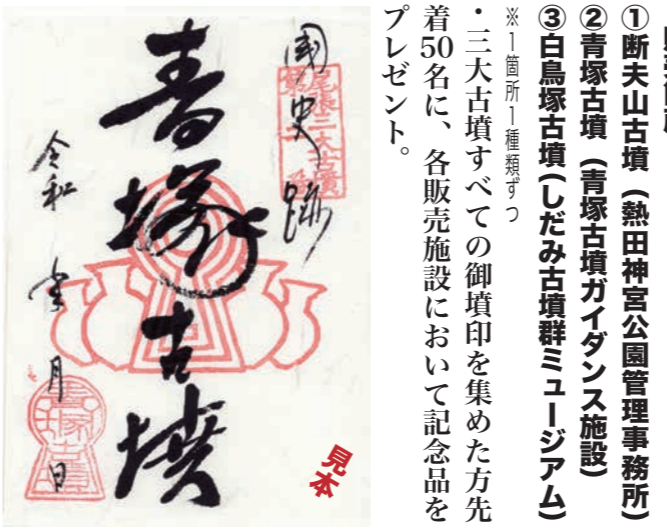 ①断夫山古墳（熱田神宮公園管理事務所）
②青塚古墳（青塚古墳ガイダンス施設）
③白鳥塚古墳（しだみ古墳群ミュージアム）
※1箇所1種類ずつ
・三大古墳すべての御墳印を集めた方先
着50名に、各販売施設において記念品を
プレゼント。
國史跡
尾張三大古墳
青塚古墳
令和
月
日
青塚古墳
見本